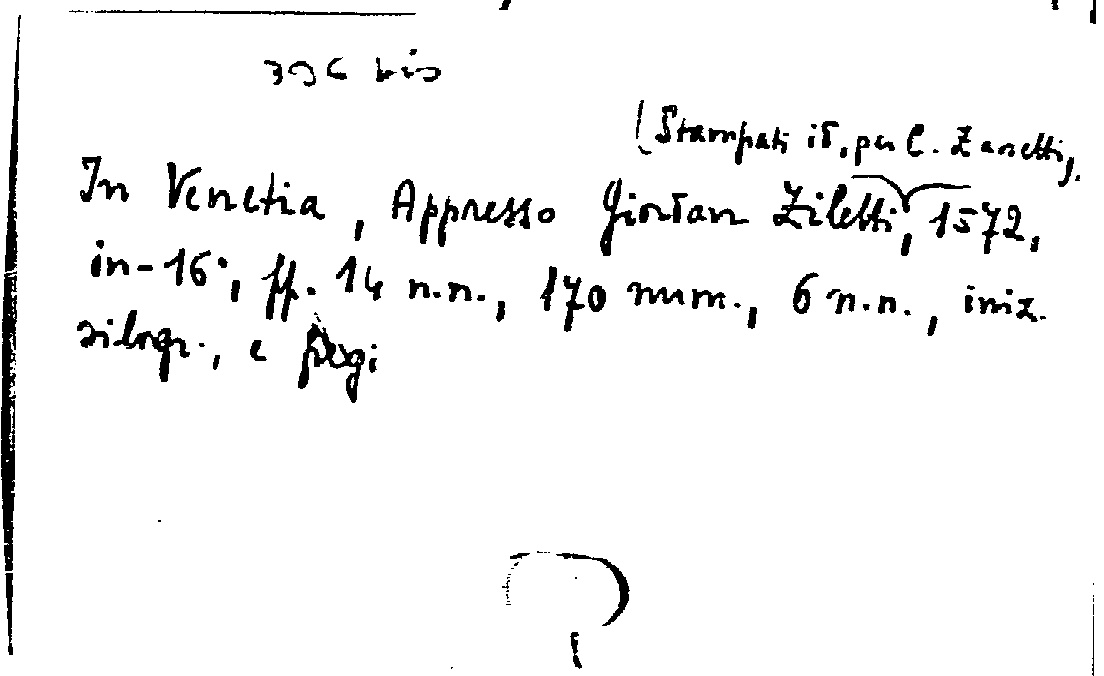 396 bis
(Stampati id., per C. Zanetti),
In Venetia, Appresso Giordan Ziletti, 1572,
in-16°, ff. 14 n.n., 170 num., 6 n.n., iniz.
silogr., e fregi